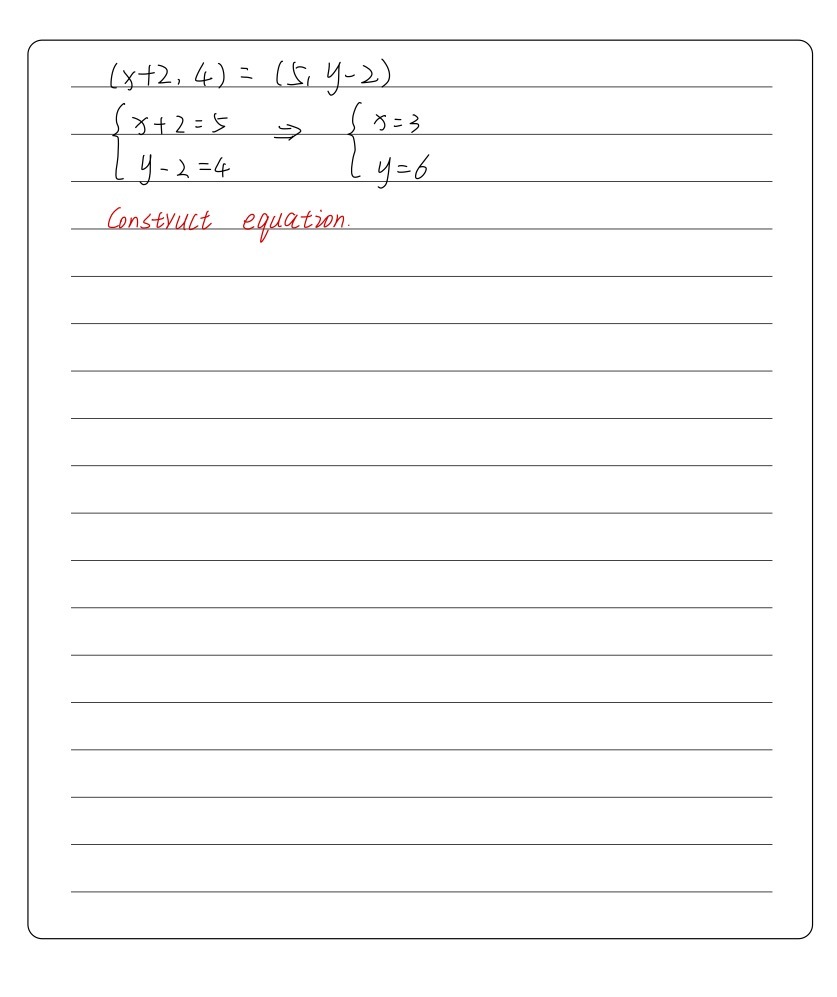 (x+2, 4) = (5, y-2)
{ x+2=5 ⇒ { x=3
y-2=4 y=6
Construct equation.